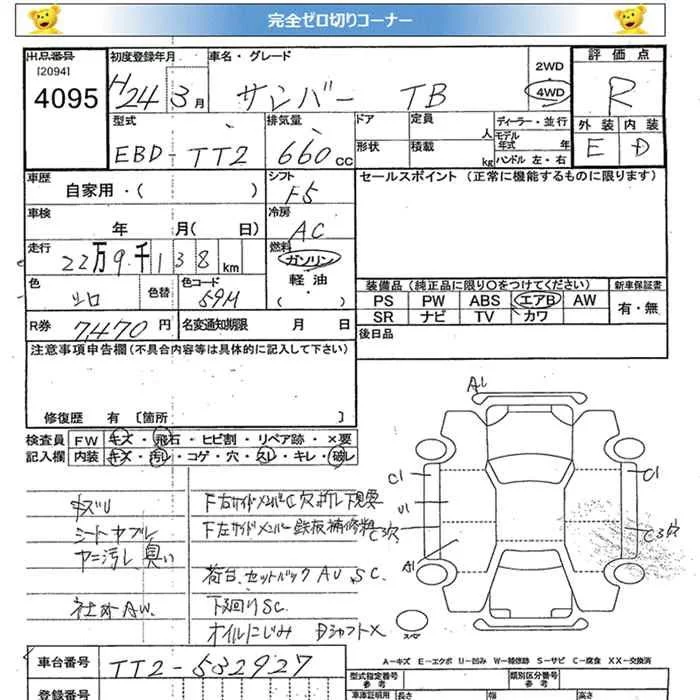 完全ゼロ切りコーナー
出品番号 初度登録年月 車名・グレード 2WD 評価点
[2094]
4095 H24 3月 サンバー TB 4WD R
型式 排気量 ドア 定員 人 ディーラー・並行 外装 内装
EBD-TT2 660cc 形状 積載 kg モデル年式 年 E D
ハンドル 左・右
車歴 シフト セールスポイント (正常に機能するものに限ります)
自家用・( ) F5
車検 冷房
年 月( 日) AC
走行 燃料
22万9千138km ガソリン
軽油
( )
色 色替 色コード 装備品 (純正品に限り○をつけてください) 新車保証書
シロ 59M PS PW ABS エアB AW 有・無
SR ナビ TV カワ
R券 7,470円 名変通知期限 月 日 後日品
注意事項申告欄(不具合内容等は具体的に記入して下さい)
修復歴 有 [箇所 ]
検査員 FW キズ・飛石・ヒビ割・リペア跡・×要
記入欄 内装 キズ・汚レ・コゲ・穴・スレ・キレ・破レ
A1
C1 C1
U1
C3穴 C3穴
A1
シートヤブレ
ヤニ汚レ 臭い
荷台、セットバック AU SC.
社外AW. 下廻りSC.
オイルにじみ DシャフトX
スペア
A-キズ E-エクボ U-凹み W-補修跡 S-サビ C-腐食 XX-交換済
車台番号 TT2-532927 型式指定番号 類別区分番号
参考 参考
登録番号 車庫証明用 長さ 幅 高さ